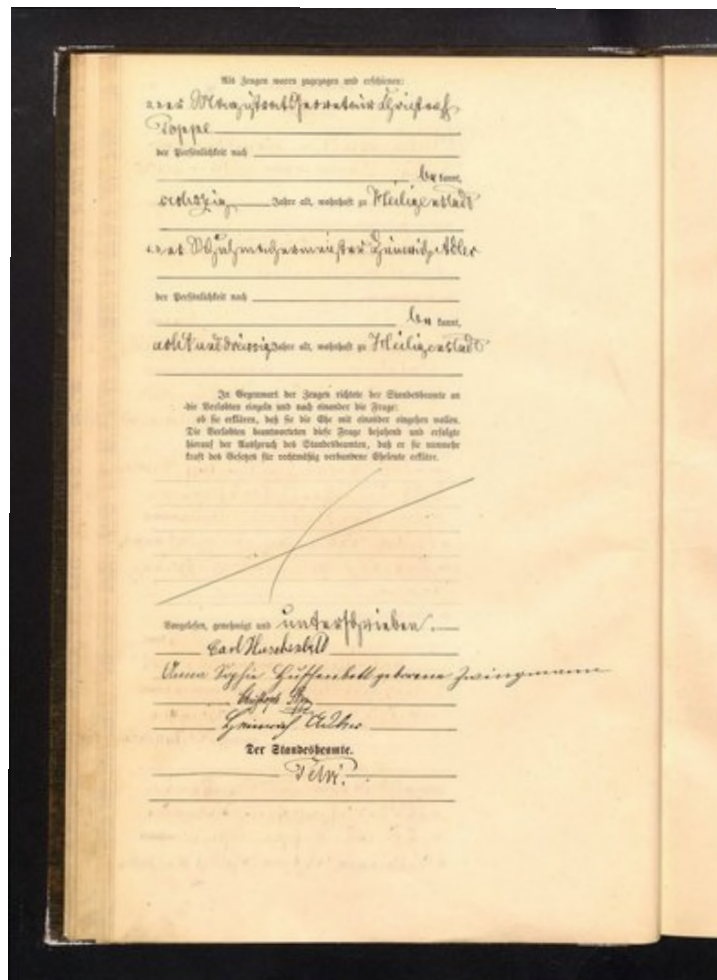 Als Zeugen waren zugezogen und erschienen:
3. der Magistrats Secretair Christoph
Poppel
der Persönlichkeit nach
be kannt,
achtzig Jahre alt, wohnhaft zu Heiligenstadt
4. der Schuhmachermeister Heinrich Adler
der Persönlichkeit nach
be kannt,
acht und dreissig Jahre alt, wohnhaft zu Heiligenstadt
In Gegenwart der Zeugen richtete der Standesbeamte an
die Verlobten einzeln und nach einander die Frage:
ob sie erklären, daß sie die Ehe mit einander eingehen wollen.
Die Verlobten beantworteten diese Frage bejahend und erfolgte
hierauf der Ausspruch des Standesbeamten, daß er sie nunmehr
kraft des Gesetzes für rechtmäßig verbundene Eheleute erkläre.
Vorgelesen, genehmigt und unterschrieben.
Carl
Anna Sophie geborene Zwingmann
Christoph
Heinrich Adler
Der Standesbeamte.